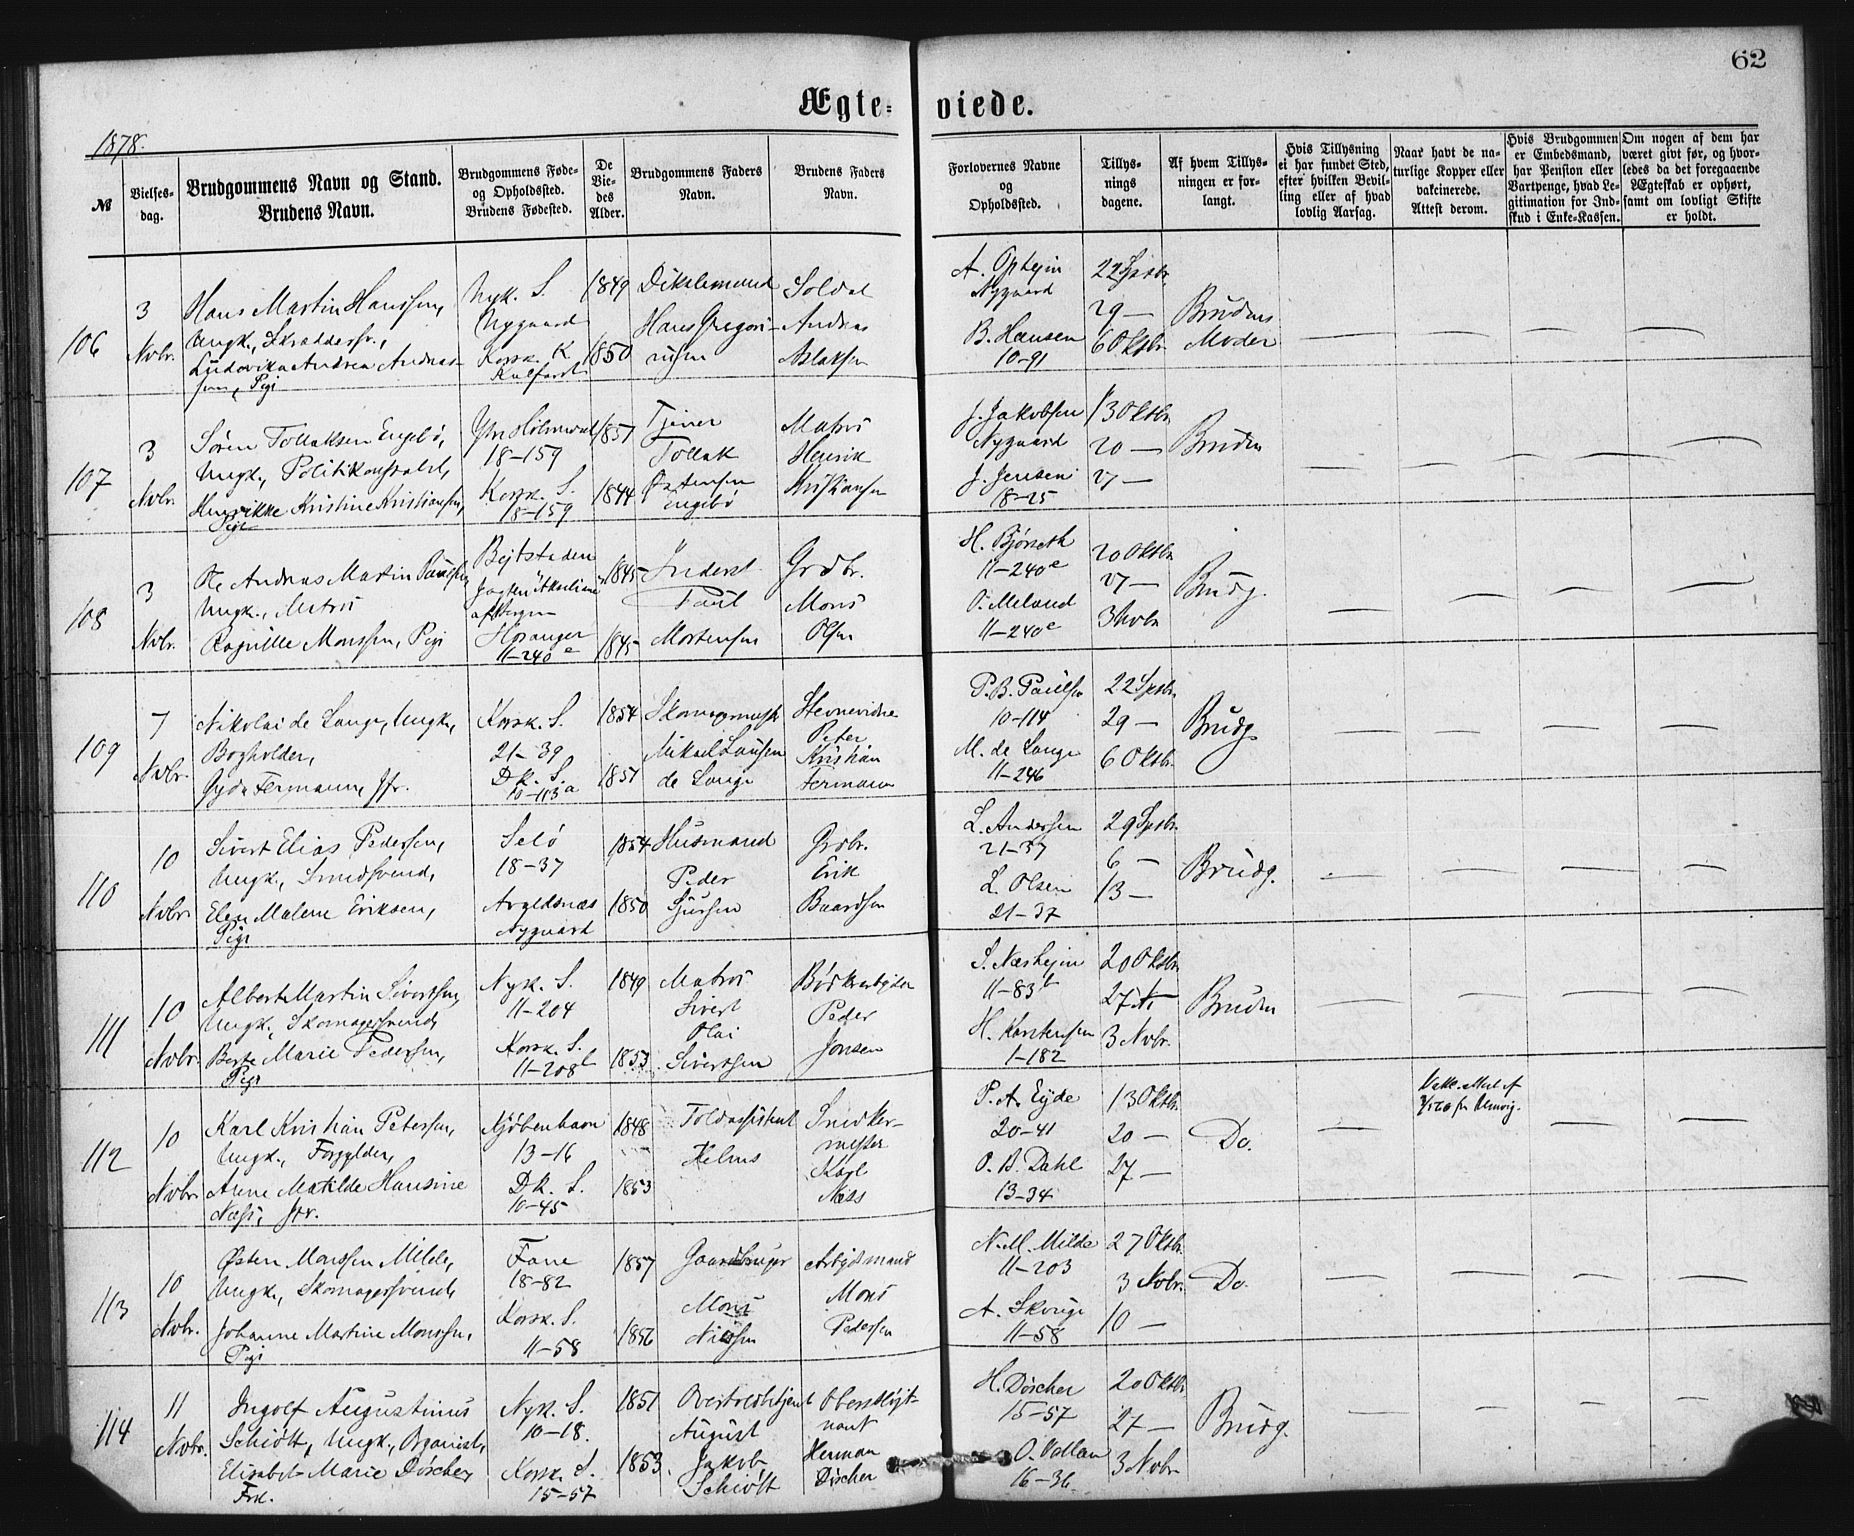 62
Ægte- viede.
1878.
№
Vielses-
dag.
Brudgommens Navn og Stand.
Brudens Navn.
Brudgommens Føde-
og Opholdssted.
Brudens Fødested.
De
Vie-
des
Alder.
Brudgommens Faders
Navn.
Brudens Faders
Navn.
Forlovernes Navne
og
Opholdssted.
Tillys-
nings
dagene.
Af hvem Tillys-
ningen er for-
langt.
Hvis Tillysning
ei har fundet Sted,
efter hvilken Bevil-
ling eller af hvad
lovlig Aarsag.
Naar havt de na-
turlige Kopper eller
vakcinerede.
Attest derom.
Hvis Brudgommen
er Embedsmand,
har Pension eller
Vartpenge, hvad Le-
gitimation for Ind-
skud i Enke-Kassen.
Om nogen af dem har
været givt før, og hvor-
ledes da det foregaaende
Ægteskab er ophørt,
samt om lovligt Skifte
er holdt.
106
3
Nvbr.
Hans Martin Hanssen,
Ungk., Skræddersv.,
Ludovika Andrea Andreas-
sen, Pige
Nyk. S.
Nygaard
Korsk. K
Kalfaret
1849
1850
Hans Gregori-
ussen
Soldat
Andreas
Aslaksen
Nygaard
B. Hansen
10-91
22 Spbr.
29 —
6 Oktbr.
Brudens
Moder
107
3
Nvbr.
Søren Tollaksen Engebø,
Ungk., Politikonstabel,
Henrikke Kristine Kristiansen,
Pige
18-159
Korsk. S.
18-159
1851
1844
Tjener
Tollak
Østensen
Engebø
Matros
Henrik
Kristiansen
J. Jakobsen
Nygaard
J. Jensen
18-25
13 Oktbr.
20 —
27 —
Bruden
108
3
Nvbr.
Ole Andreas Martin Paulsen
Ungk., Matros
Ragnille Monssen, Pige
Bejtstaden
af Bergen
Hosanger
11-240e
1845
1845
Inderst
Paul
Mortensen
Grdbr.
Mons
Olsen
H. Bjørseth
11-240e
O. Meland
11-240e
20 Oktbr.
27 —
3 Nvbr.
Brudg.
109
7
Nvbr.
Nikolai de Lange, Ungk.,
Bogholder,
Gyda Fermann, Jfr.
Korsk. S.
21-39
Dk. S.
10-113a
1854
1851
Skomagermester
Mikael Laussen
de Lange
Stevnevidne
Peter
Kristian
Fermann
P. B. Paulsen
10-114
M. de Lange
11-246
22 Spbr.
29 —
6 Oktbr.
Brudg.
110
10
Nvbr.
Sivert Elias Pedersen,
Ungk., Smedsvend,
Elen Malene Eriksen,
Pige
Selø
18-37
Avaldsnæs
Nygaard
1854
1850
Husmand
Peder
Sjursen
Grdbr.
Erik
Baardsen
L. Andersen
21-37
L. Olsen
21-37
29 Spbr.
6 —
13 —
Brudg.
111
10
Nvbr.
Albert Martin Sivertsen,
Ungk., Skomagersvend,
Berte Marie Pedersen,
Pige
Nyk. S.
11-204
Korsk. S.
11-208b
1849
1853
Matros
Sivert
Olai
Sivertsen
Bødkerarbejder
Peder
Jonsen
S. Næshejm
11-83b
H. Karstensen
1-182
20 Oktbr.
27 —
3 Nvbr.
Bruden
112
10
Nvbr.
Karl Kristian Petersen,
Ungk., Forgylder,
Anne Matilde Hansine
Næss, Jfr.
Kjøbenhavn
13-16
Dk. S.
10-45
1848
1853
Toldassistent
Helms
Snedker-
mester
Karl
Næss
P. A. Eyde
20-41
O. B. Dahl
13-34
13 Oktbr.
20 —
27 —
Do.
113
10
Nvbr.
Østen Monssen Milde,
Ungk., Skomagersvend,
Johanne Martine Monssen,
Pige
Fane
18-82
Korsk. S.
11-58
1857
1856
Gaardbruger
Mons
Nilssen
Arbejdsmand
Mons
Pedersen
N. M. Milde
11-203
A. Skouge
11-58
27 Oktbr.
3 Nvbr.
10 —
Do.
114
11
Nvbr.
Ingolf Augustinus
Schiøtt, Ungk., Organist,
Elisabet Marie Døscher,
Frk.
Nyk. S.
10-18.
Korsk. S.
15-57
1851
1853.
Overtoldbetjent
August
Jakob
Schiøtt
Oberstløjt-
nant
Herman
Døscher
H. Døscher
15-57
O. Vollan
16-36
20 Oktbr.
27 —
3 Nvbr.
Brudg.